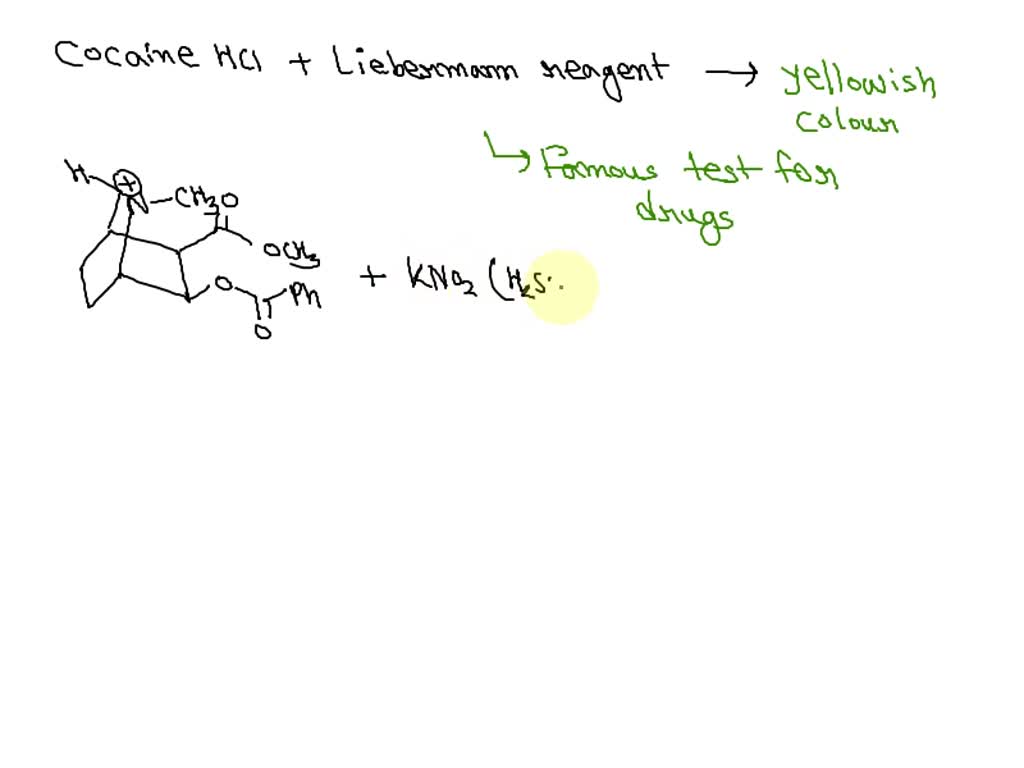 Cocaine HCl + Liebermann reagent → yellowish
colour
↳ Famous test for
drugs
H
⊕
N
CH3
O
OCH3
O
Ph
O
+ KNO2 (H2S